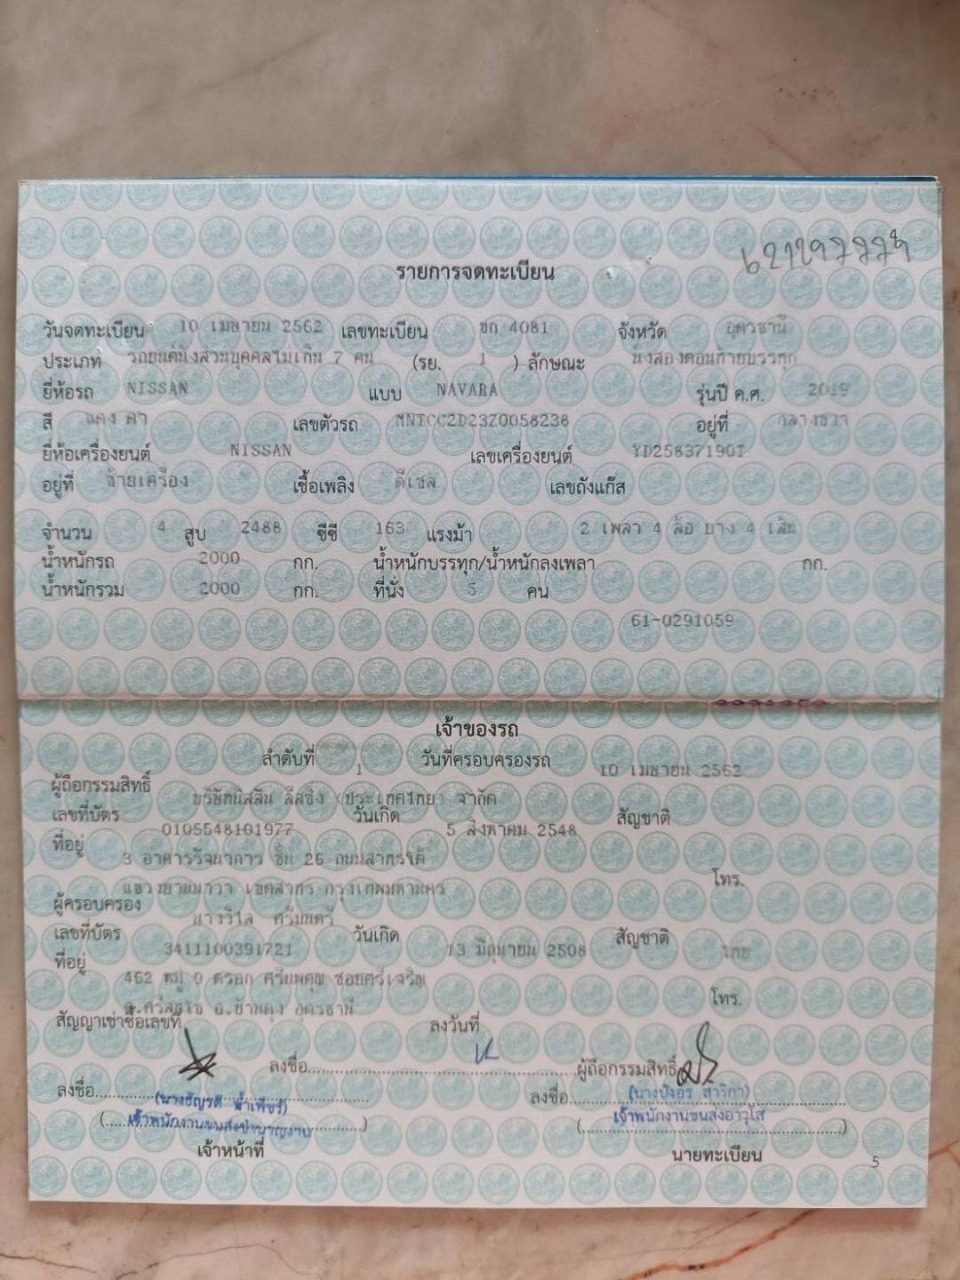 รายการจดทะเบียน
วันจดทะเบียน 10 เมษายน 2562 เลขทะเบียน ขก 4081 จังหวัด อุดรธานี
ประเภท รถยนต์นั่งส่วนบุคคลไม่เกิน 7 คน (รย. 1 ) ลักษณะ นั่งสองตอนท้ายบรรทุก
ยี่ห้อรถ NISSAN แบบ NAVARA รุ่นปี ค.ศ. 2019
สี แดง ดำ เลขตัวรถ MNTCC2D23Z0058238 อยู่ที่ กลางขวา
ยี่ห้อเครื่องยนต์ NISSAN เลขเครื่องยนต์ YD25837190T
อยู่ที่ ซ้ายเครื่อง เชื้อเพลิง ดีเซล เลขถังแก๊ส
จำนวน 4 สูบ 2488 ซีซี 163 แรงม้า 2 เพลา 4 ล้อ ยาง 4 เส้น
น้ำหนักรถ 2000 กก. น้ำหนักบรรทุก/น้ำหนักลงเพลา กก.
น้ำหนักรวม 2000 กก. ที่นั่ง 5 คน
61-0291059
เจ้าของรถ
ลำดับที่ 1 วันที่ครอบครองรถ 10 เมษายน 2562
ผู้ถือกรรมสิทธิ์ บริษัทนิสสัน ลีสซิ่ง (ประเทศไทย) จำกัด
เลขที่บัตร 0105548101977 วันเกิด 5 สิงหาคม 2548 สัญชาติ
ที่อยู่ 3 อาคารรัจนาการ ชั้น 26 ถนนสาทรใต้
แขวงยานนาวา เขตสาทร กรุงเทพมหานคร โทร.
ผู้ครอบครอง นางวิไล ศรีมนตรี
เลขที่บัตร 3411100391721 วันเกิด 13 มิถุนายน 2508 สัญชาติ ไทย
ที่อยู่ 462 หมู่ ตรอก ซอยศรีเจริญ
ต.ศรีสุทโธ อ.บ้านดุง อุดรธานี โทร.
สัญญาเช่าซื้อเลขที่ ลงวันที่
ลงชื่อ ผู้ถือกรรมสิทธิ์
ลงชื่อ ลงชื่อ
เจ้าพนักงานขนส่งชำนาญงาน เจ้าพนักงานขนส่งอาวุโส
เจ้าหน้าที่ นายทะเบียน
5